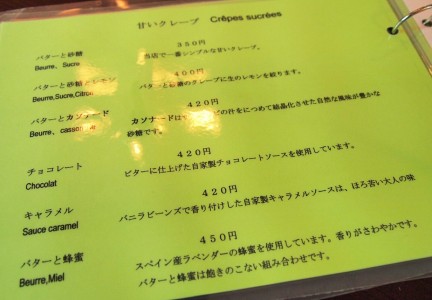 甘いクレープ Crêpes sucrées
バターと砂糖 350円
Beurre、Sucre 当店で一番シンプルな甘いクレープ。
バターと砂糖とレモン 400円
Beurre,Sucre,Citron バターと砂糖のクレープに生のレモンを絞ります。
バターとカソナード 420円
Beurre、 カソナードは の汁をにつめて結晶化させた自然な風味が豊かな
砂糖です。
チョコレート 420円
Chocolat ビターに仕上げた自家製チョコレートソースを使用しています。
キャラメル 420円
Sauce caramel バニラビーンズで香り付けした自家製キャラメルソースは、ほろ苦い大人の味
バターと蜂蜜 450円
Beurre,Miel スペイン産ラベンダーの蜂蜜を使用しています。香りがさわやかです。
バターと蜂蜜は飽きのこない組み合わせです。